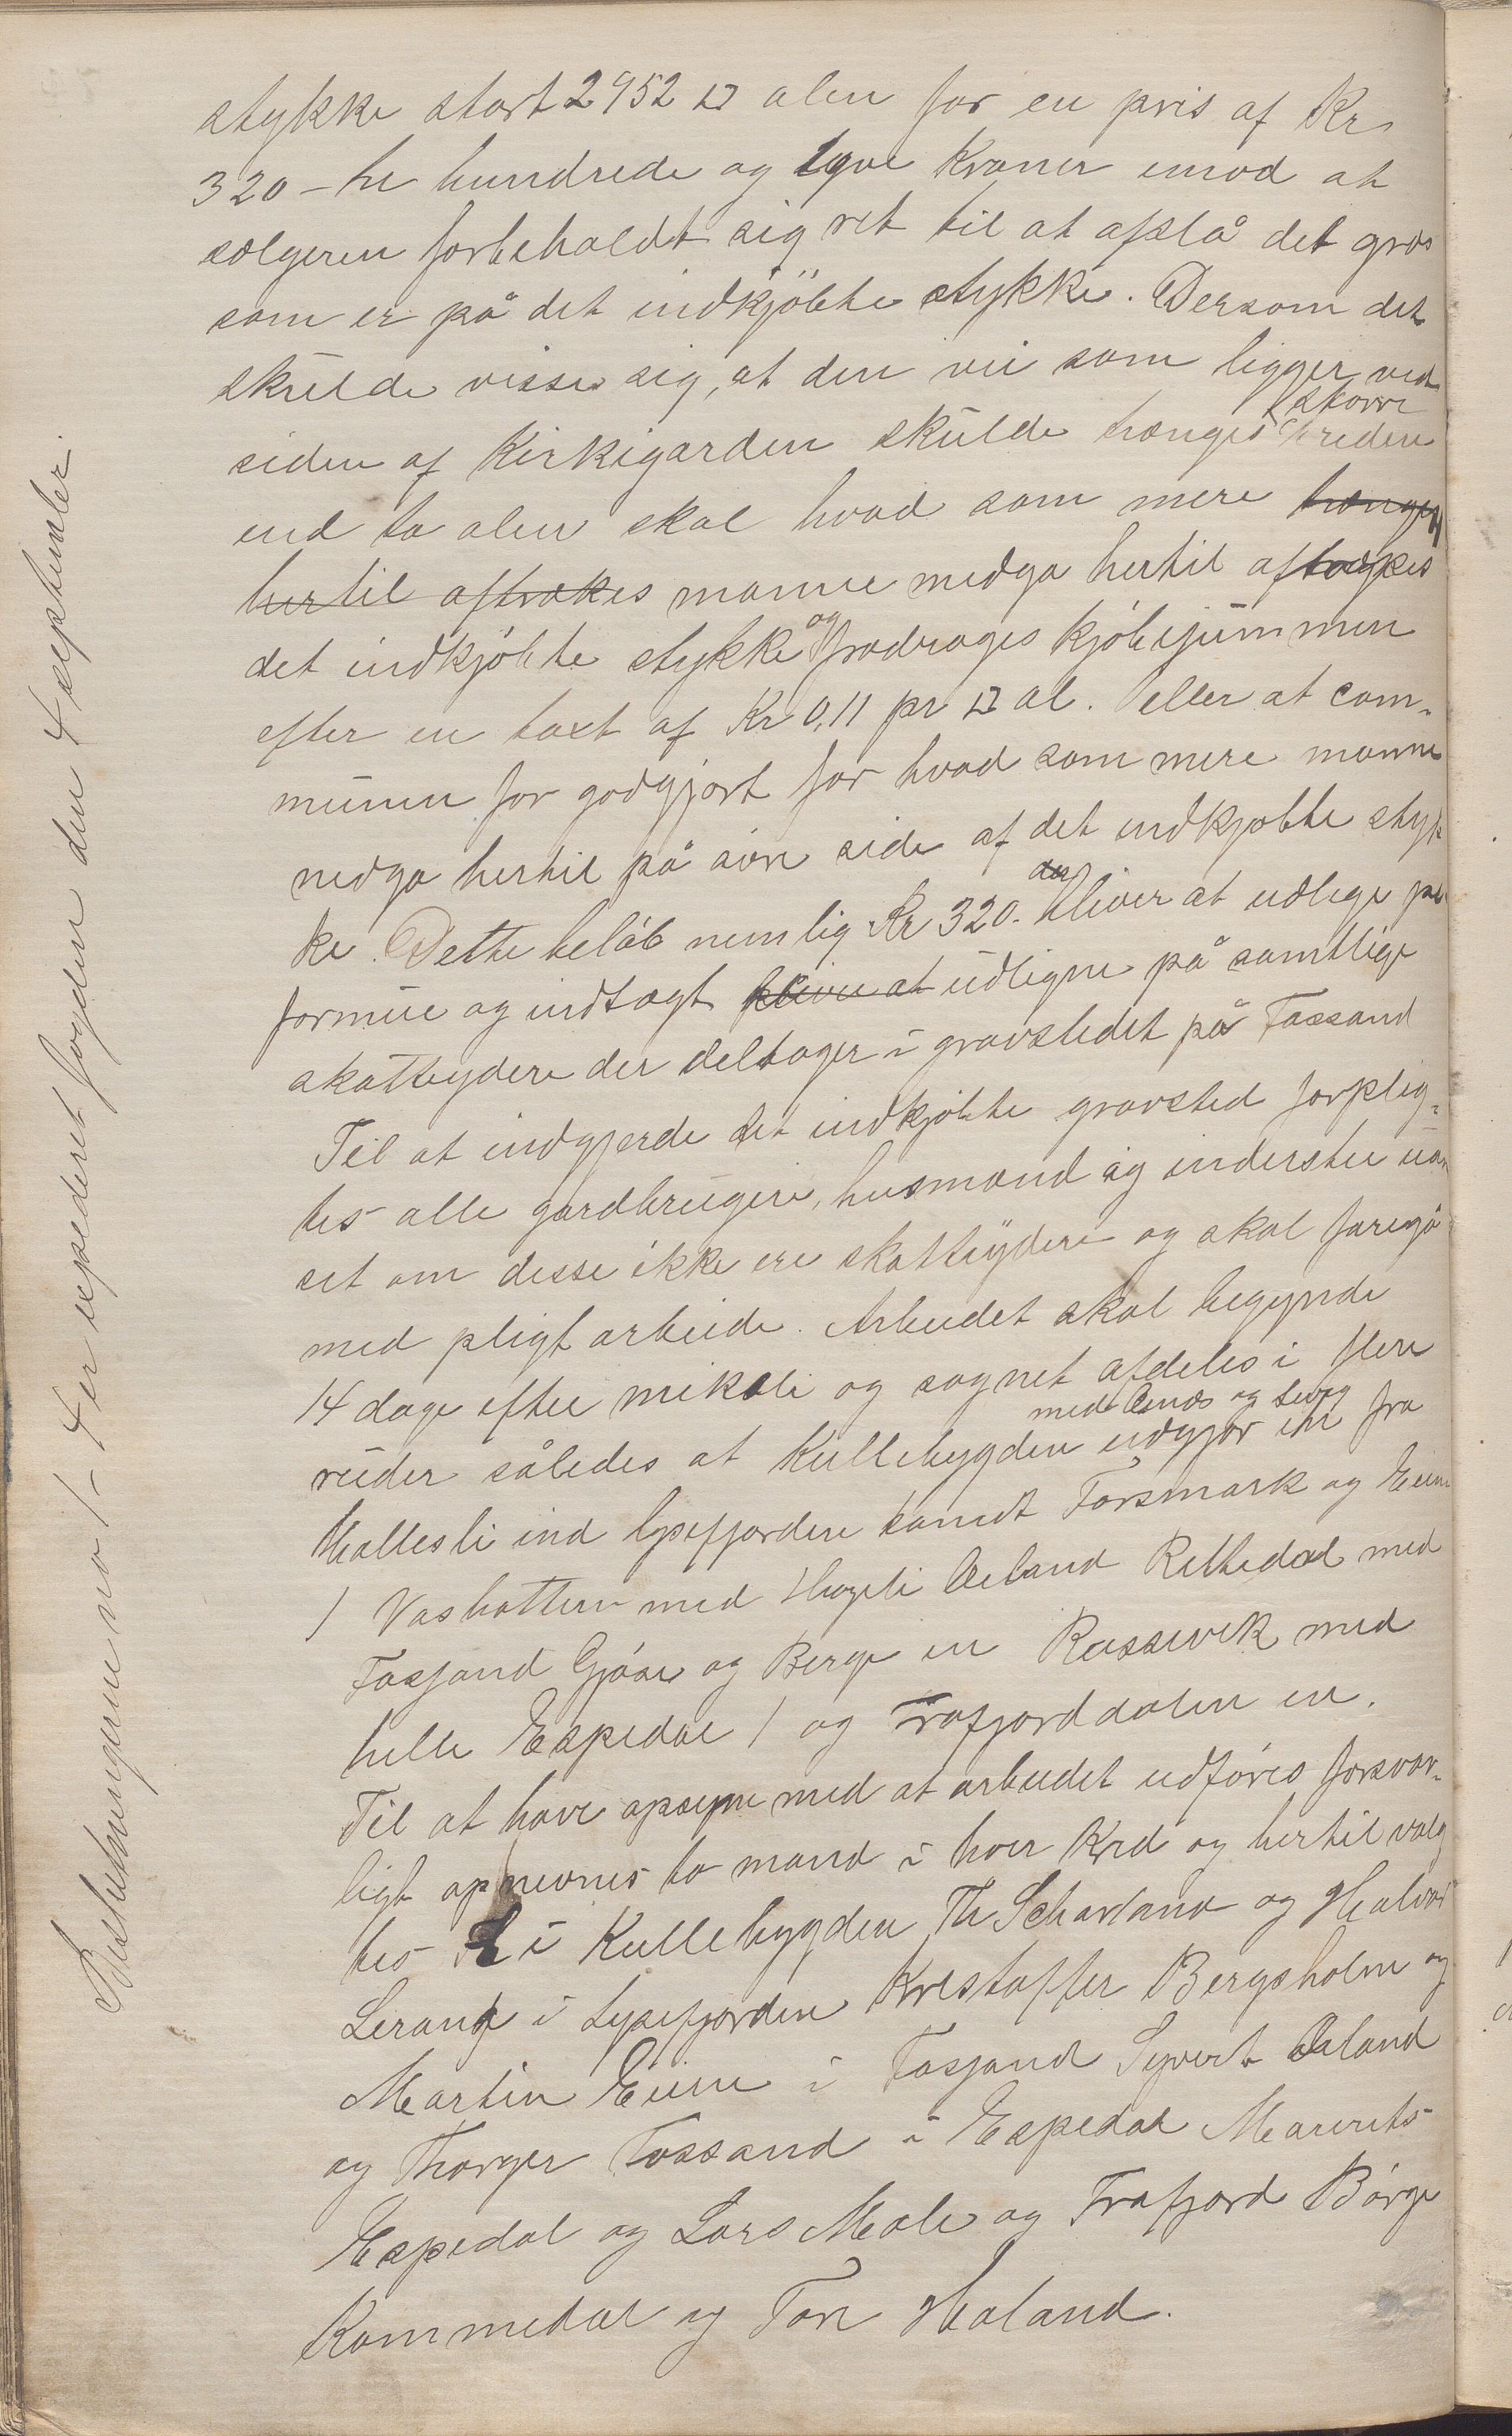 stykke stort 2952 □ alen for en pris af Kr
320 – tre hundrede og tyve Kroner imod at
sælgeren forbeholdt sig ret til at afslå det græs
som er på det indkjöbte stykke. Dersom det
skulde visse sig, at den vei som ligger ved
siden af Kirkigarden skulde trænges större
end to alen skal hvad som mere trænges
hertil aftrækes manne medga hertil aftrækes
det indkjöbte stykke og fradrages kjöbesummen
efter en taxt af Kr 0,11 pr □ al. eller at com-
munen får godgjort for hvad som mere manne
medga hertil på äön side af det indkjøbte styk
ke. Dette belöb nemlig Kr 320. bliver at udlegge på
formue og indtægt bliver at udligne på samtlige
skatteydere der deltager i gravstedet på Fossand
Til at indgjerde det indkjöbte gravsted forplig-
tes alle gardbrugere, husmænd og inderster uan
set om desse ikke ere skatteydere og skal foregå
med pligtarbeide. Arbeidet skal begynde
14 dage efter mikali og sognet afdeles i flere
med Anæs og Levog
ruder således at Kullebygden udgjør en fra
Hallesli ind lysefjorden samdt Forsmark og Eiene
1 Vasbotten med Hageli Aeland Rettedal med
Fosjand Gjöse og Berge en Rassevik med
helle Espedal 1 og Frafjorddalen en.
Til at have opseyn med at arbeidet udföres forsvar-
ligt opnevnes to mand i hver Krd og hertil valg
tes i Kullebygden Th Scharland og Halvor
Lerang i Lysefjorden Kristoffer Bergsholm og
Martin Eiene i Fosjand Syvert Aeland
og Thorger Fossand i Espedal Mareuts
Espedal og Lars Mele og Frafjord Börge
Kommedal og Tore Haland.
Beslutningerne no 1 – 4 er expederet fogden den 4 september